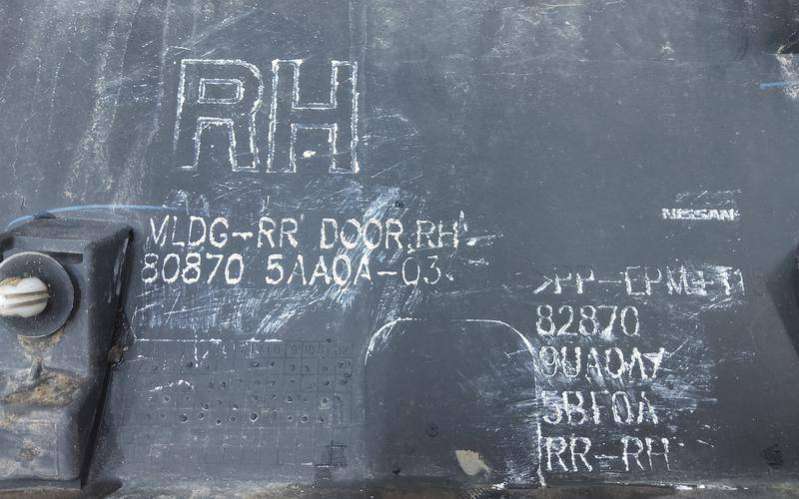 RH
MLDG-RR DOOR RH
80870 5AA0A-03
NISSAN
82870
5BF0A
RR-RH